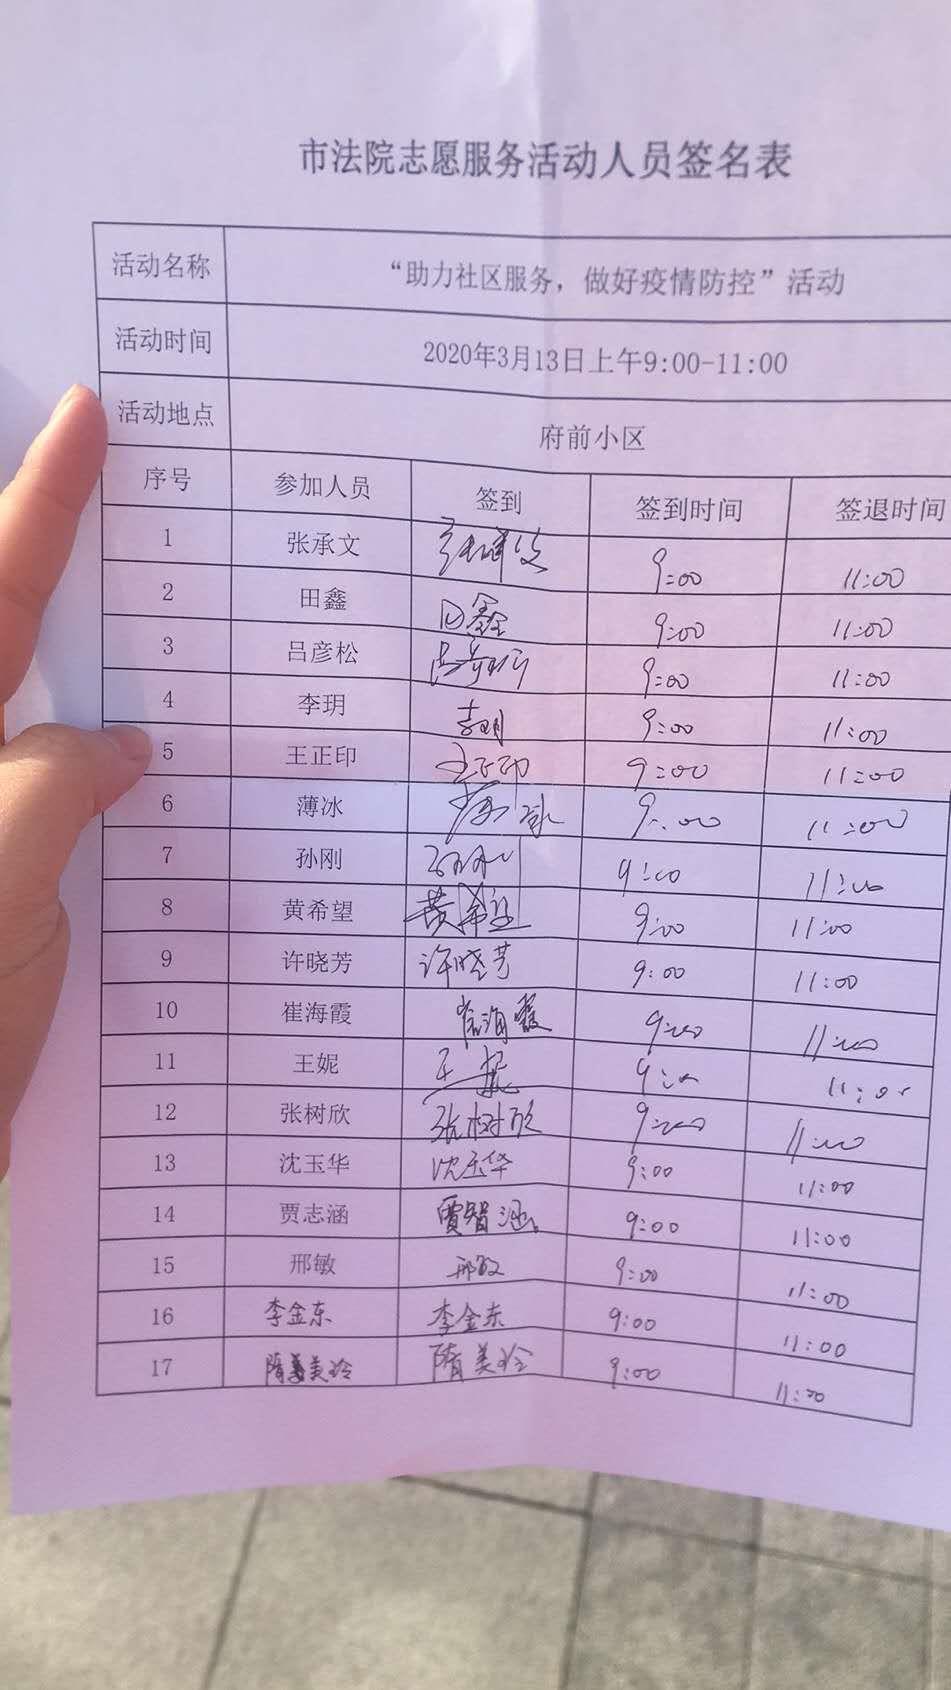 市法院志愿服务活动人员签名表
活动名称 “助力社区服务，做好疫情防控”活动
活动时间 2020年3月13日上午9:00-11:00
活动地点 府前小区
序号 参加人员 签到 签到时间 签退时间
1 张承文 张承文 9:00 11:00
2 田鑫 田鑫 9:00 11:00
3 吕彦松 吕彦松 9:00 11:00
4 李玥 李玥 9:00 11:00
5 王正印 王正印 9:00 11:00
6 薄冰 薄冰 9:00 11:00
7 孙刚 孙刚 9:00 11:00
8 黄希望 黄希望 9:00 11:00
9 许晓芳 许晓芳 9:00 11:00
10 崔海霞 崔海霞 9:00 11:00
11 王妮 王妮 9:00 11:00
12 张树欣 张树欣 9:00 11:00
13 沈玉华 沈玉华 9:00 11:00
14 贾志涵 贾智涵 9:00 11:00
15 邢敏 邢敏 9:00 11:00
16 李金东 李金东 9:00 11:00
17 隋美玲 隋美玲 9:00 11:00